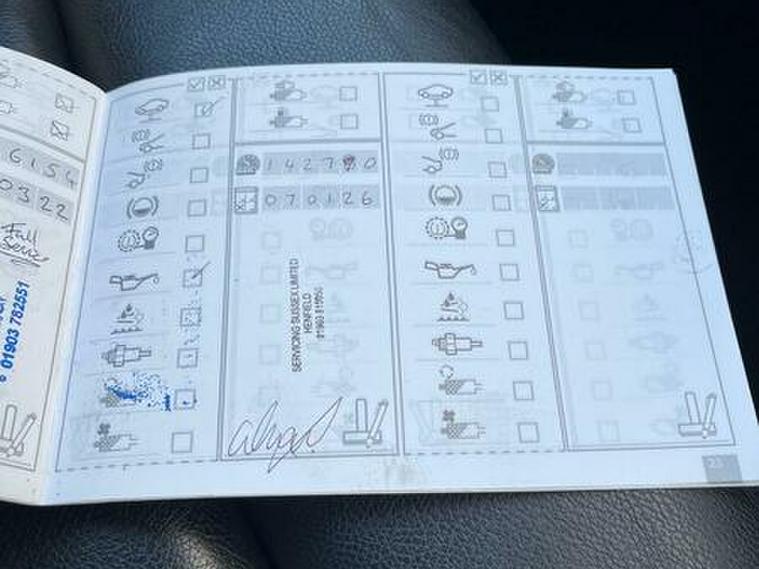 6154
0322
Full
Service
01903 782551
142780
070126
SERVICING SUSSEX LIMITED
HENFIELD
23